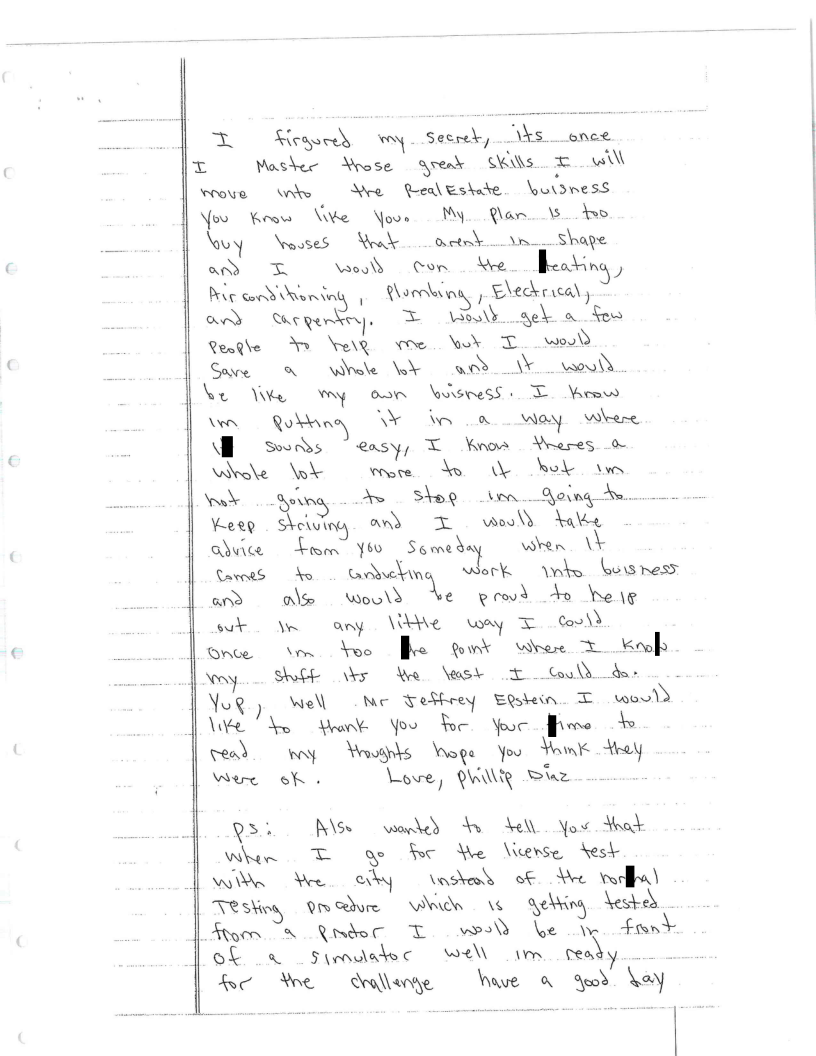 I firgured my secret, its once
I Master those great skills I will
move into the RealEstate buisness
you know like you. My plan is too
buy houses that arent in shape
and I would run the eating,
Airconditioning, Plumbing, Electrical,
and carpentry. I would get a few
people to help me but I would
save a whole lot and it would
be like my own buisness. I know
im putting it in a way where
sounds easy, I know theres a
whole lot more to it but im
not going to stop im going to
keep striving and I would take
advice from you someday when it
comes to conducting work into buisness
and also would be proud to help
out in any little way I could
once im too he point where I kno
my stuff its the least I could do.
Yup, well Mr Jeffrey Epstein I would
like to thank you for your ime to
read my thoughts hope you think they
were ok. Love, Phillip Diaz
ps: Also wanted to tell you that
when I go for the license test
with the city instead of the nor al
Testing procedure which is getting tested
from a proctor I would be in front
of a simulator well im ready
for the challenge have a good day